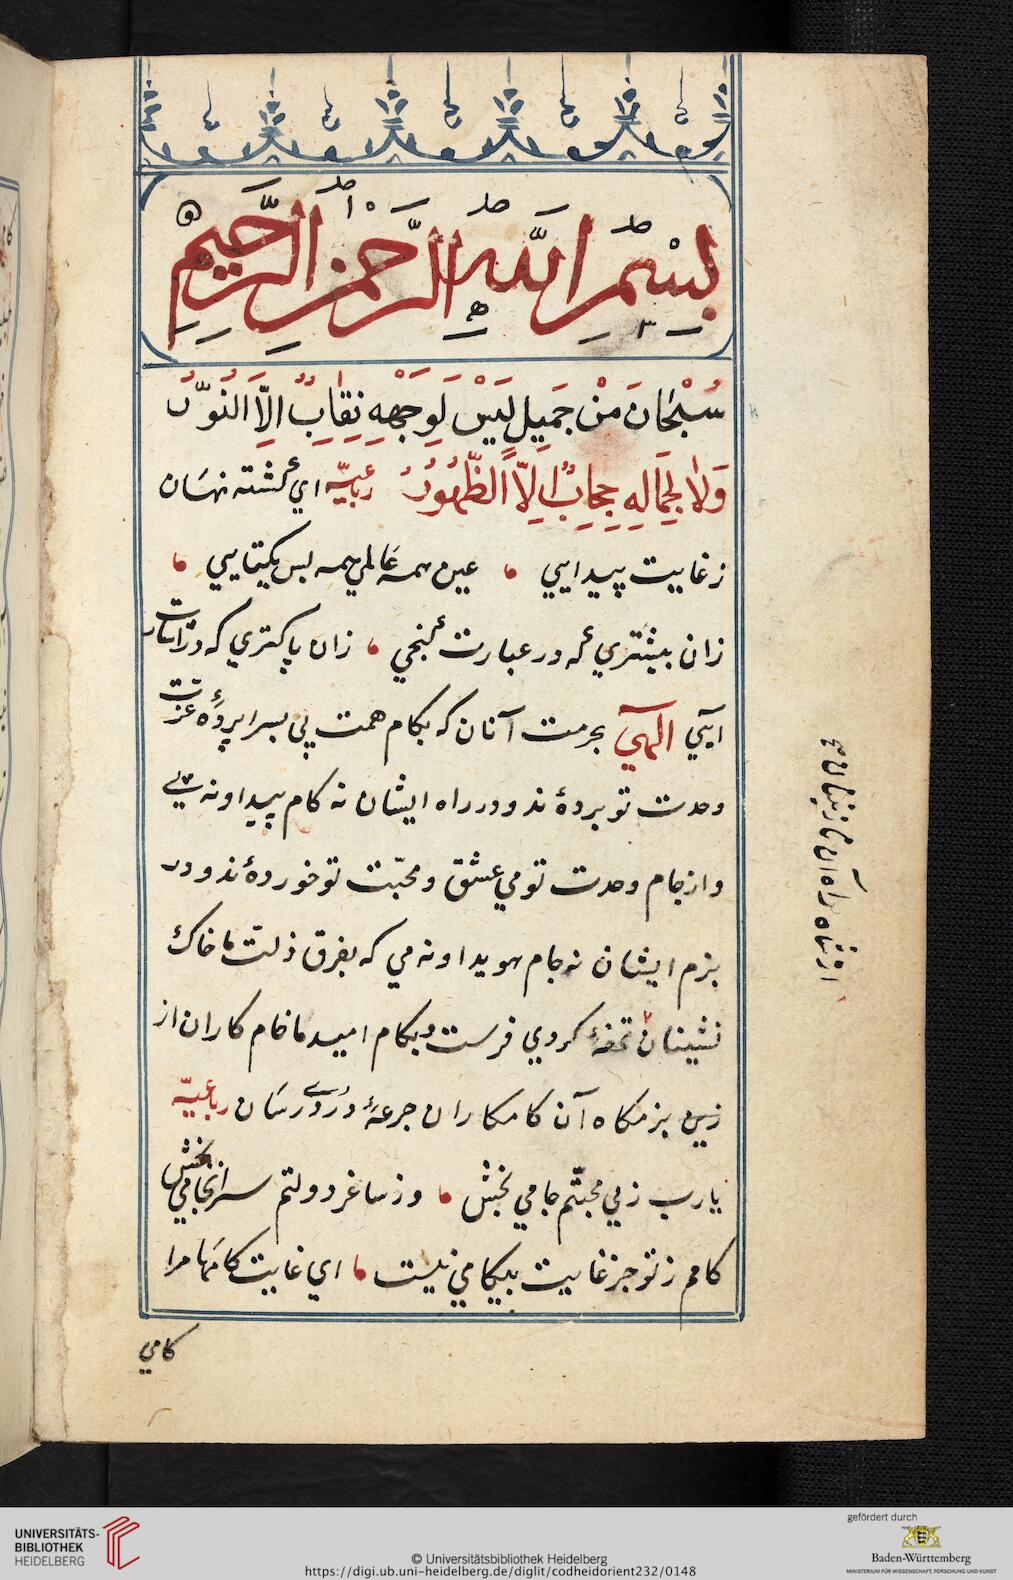 بِسْمِ اللّٰهِ الرَّحْمٰنِ الرَّحِيْمِ
سُبْحَانَ مَنْ جَمِيلٍ لَيْسَ لِوَجْهِهِ نِقَابٌ اِلَّا النُّوْرُ
وَلَا لِجَمَالِهِ حِجَابٌ اِلَّا الظُّهُورُ رباعيّه اي گشته نهسان
زغايت پيدايي عين همه عالمي همه بس يكتايي
زان بيشتري كه در عبارت گنجي زان پاكتري كه در اشارت
آيي الهي بحرمت آنان كه بكام همت پي بسراپردهٔ عزت
وحدت تو بردهٔ ند و در راه ايشان نه كام پيدا و نه پي
و از جام وحدت تو مي عشق و محبّت تو خوردهٔ ند و در
بزم ايشان نه جام هويدا و نه مي كه بفرق ذلت ما خاك
نشينان تحفهٔ كردي فرست و بكام اميد ما خام كاران از
زين بزمكاه آن كامكاران جرعهٔ دُردي رسان رباعيّه
يارب زمي محبتم جامي بخش وز ساغر دولتم سرانجامي بخش
كامم ز تو جز غايت بيكامي نيست اي غايت كامها مرا
كامي
UNIVERSITÄTS-
BIBLIOTHEK
HEIDELBERG
© Universitätsbibliothek Heidelberg
https://digi.ub.uni-heidelberg.de/diglit/codheidorient232/0148
gefördert durch
Baden-Württemberg
MINISTERIUM FÜR WISSENSCHAFT, FORSCHUNG UND KUNST